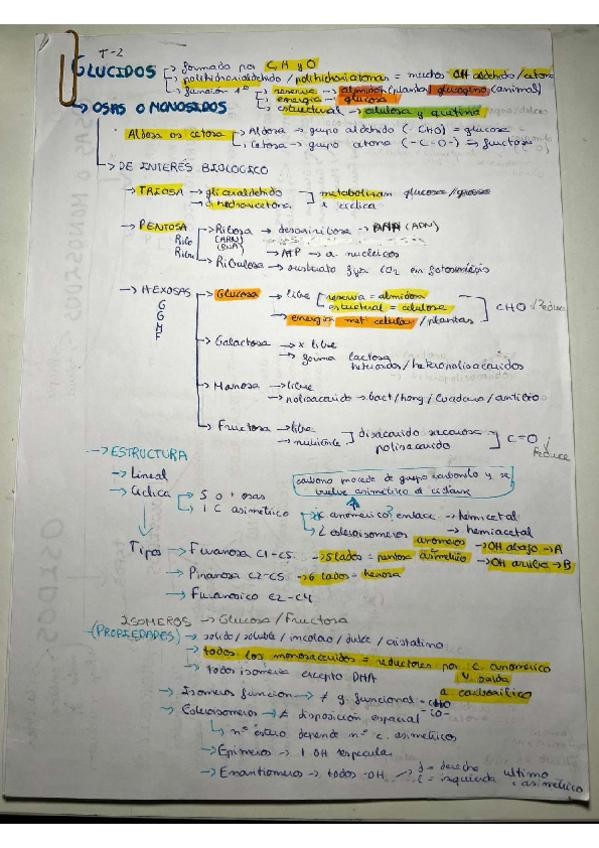 T-2
GLUCIDOS → formada por C, H y O
→ polihidroxialdehído / polihidroxiatonas = muchos OH aldehido/cetona
→ función 1ª → reserva → almidón (plantas) glucogeno (animal)
→ energia → glucosa
→ estructural → celulosa y quitina
→ OSAS O MONOSIDOS
Aldosa os cetosa → Aldosa → grupo aldehido (-CHO) = glucosa
→ Cetosa → grupo atona (-C-O-) → fructosa
→ DE INTERÉS BIOLOGICO
→ TRIOSA → gliceraldehido
→ dihidroxicetona
metabolizan glucosa/grasa
x ciclica
→ PENTOSA → Ribosa → desoxirribosa → (ADN)
Ribo (ARN)
Ribu (RNA) → ATP → a nucleicos
→ Ribulosa → sustrato fija CO2 en fotosintesis
→ HEXOSAS → Glucosa → libre reserva = almidon
G estructural = celulosa
G → energia met celular / plantas
M
F
CHO reduce
→ Galactosa → x libre
→ forma lactosa
heterosidos / heteropolisacaridos
→ Manosa → libre
→ polisacarido → bact/hong / Levadura / antibio
→ Fructosa → libre
→ nutriente
disacarido sacarosa
polisacarido
C=O reduce
→ ESTRUCTURA
→ Lineal
→ Ciclica → 5 o + osas
→ 1 C asimetrico
carbono procede de grupo carbonilo y se
vuelve asimetrico al ciclarse
→ C anomerico? enlace → hemicetal
→ hemiacetal
2 estereoisomeros anomeros → OH abajo → A
→ OH arriba → B
Tipos → Furanosa C1-C5 → 5 lados = pentosa asimetrico
→ Piranosa C2-C5 → 6 lados = hexosa
→ Furanosico C2-C4
ISOMEROS → Glucosa / Fructosa
(PROPIEDADES) → solido / soluble / incoloro / dulce / cristalino
→ todos los monosacaridos = reductores por c. anomerico
→ todos isomeria excepto DHA
a carboxilico
→ Isomeros funcion → ≠ g. funcional -CHO
-CO-
→ Estereoisomeros → ≠ disposición espacial
↳ nº estereo depende nº c. asimetricos
→ Epimeros → 1 OH especular
→ Enantiomeros → todos -OH → d = derecha
L = izquierda
ultimo
c asimetrico